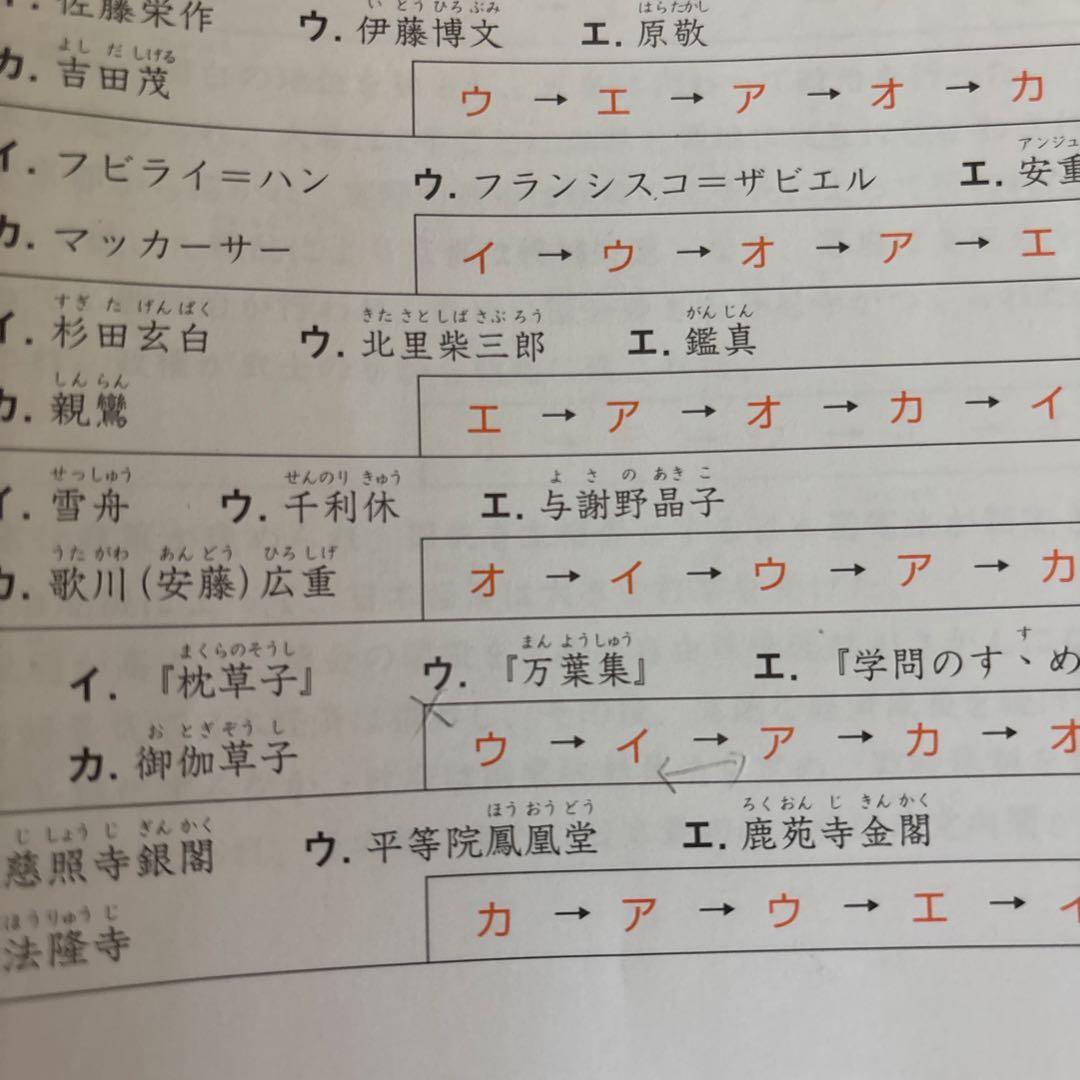 佐藤栄作 ウ. 伊藤博文 エ. 原敬
カ. 吉田茂 ウ → エ → ア → オ → カ
イ. フビライ＝ハン ウ. フランシスコ＝ザビエル エ. 安重
カ. マッカーサー イ → ウ → オ → ア → エ
イ. 杉田玄白 ウ. 北里柴三郎 エ. 鑑真
カ. 親鸞 エ → ア → オ → カ → イ
イ. 雪舟 ウ. 千利休 エ. 与謝野晶子
カ. 歌川(安藤)広重 オ → イ → ウ → ア → カ
イ. 『枕草子』 ウ. 『万葉集』 エ. 『学問のすゝめ
カ. 御伽草子 ウ → イ → ア → カ → オ
慈照寺銀閣 ウ. 平等院鳳凰堂 エ. 鹿苑寺金閣
法隆寺 カ → ア → ウ → エ → イ